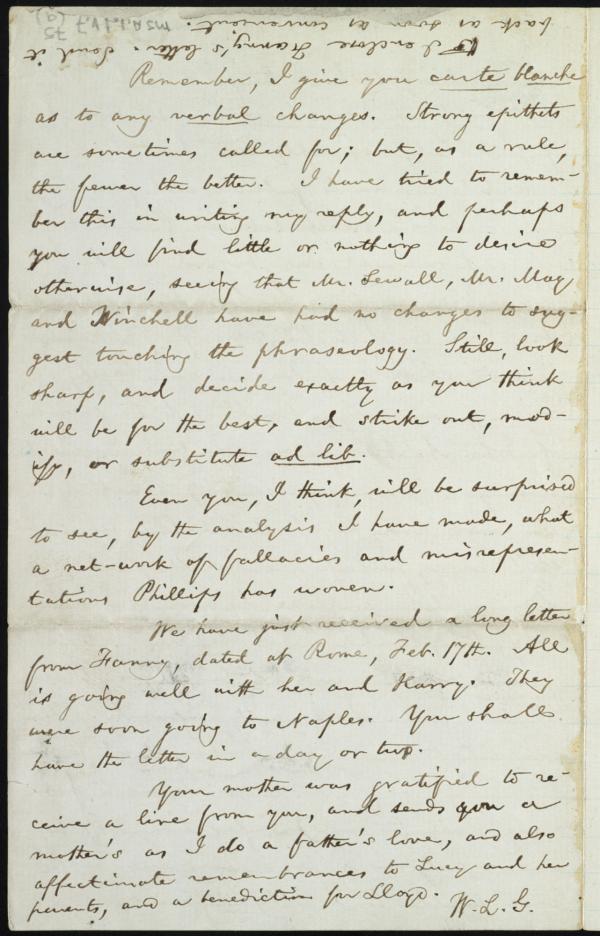 Remember, I give you carte blanche
as to any verbal changes. Strong epithets
are sometimes called for; but, as a rule,
the fewer the better. I have tried to remem-
ber this in writing my reply, and perhaps
you will find little or nothing to desire
otherwise, seeing that Mr. Sewall, Mr. May
and Winchell have had no changes to sug-
gest touching the phraseology. Still, look
sharp, and decide exactly as you think
will be for the best, and strike out, mod-
ify, or substitute ad lib.
Even you, I think, will be surprised
to see, by the analysis I have made, what
a net-work of fallacies and misrepresen-
tations Phillips has woven.
We have just received a long letter
from Fanny, dated at Rome, Feb. 17th. All
is going well with her and Harry. They
were soon going to Naples. You shall
have the letter in a day or two.
Your mother was gratified to re-
ceive a line from you, and sends you a
mother's as I do a father's love, and also
affectionate remembrances to Lucy and her
parents, and a benediction for Lloyd.
W. L. G.
I enclose Fanny's letter. Send it
back as soon as convenient.